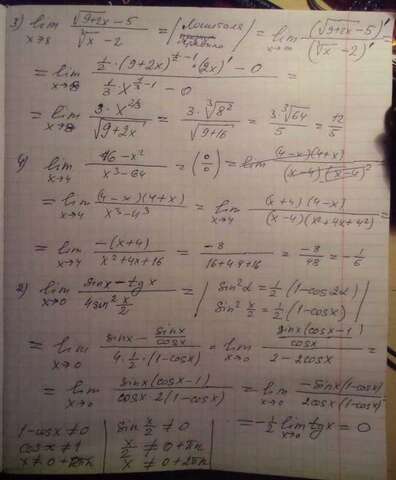 3) lim x→8 (√(9+2x) − 5)/(∛x − 2) = | Лопиталя | = lim x→∞ (√(9+2x) − 5)'/(∛x − 2)' =
= lim x→8 (1/2 · (9+2x)^(1/2 − 1) · (2x)' − 0)/(1/3 · x^(1/3 − 1) − 0) =
= lim x→8 (3 · x^(2/3))/√(9+2x) = (3 · ∛(8²))/√(9+16) = (3 · ∛64)/5 = 12/5
4) lim x→4 (16 − x²)/(x³ − 64) = (0/0) = lim (4−x)(4+x)/
= lim x→4 (4−x)(4+x)/(x³ − 4³) = lim x→4 (x+4)(4−x)/((x−4)(x²+4x+4²)) =
= lim x→4 −(x+4)/(x²+4x+16) = −8/(16+4·4+16) = −8/48 = −1/6
2) lim x→0 (sinx − tgx)/(4 sin² x/2) = | sin²α = 1/2 (1−cos2α)
sin² x/2 = 1/2 (1−cosx) |
= lim x→0 (sinx − sinx/cosx)/(4 · 1/2 · (1−cosx)) = lim x→0 (sinx(cosx−1)/cosx)/(2−2cosx) =
= lim x→0 sinx(cosx−1)/(cosx · 2(1−cosx)) = lim x→0 −sinx(1−cosx)/(2cosx(1−cosx)) =
= −1/2 lim x→0 tgx = 0
1−cosx ≠ 0 | sin x/2 ≠ 0
cosx ≠ 1 | x/2 ≠ 0+πn
x ≠ 0+2πn | x ≠ 0+2πn